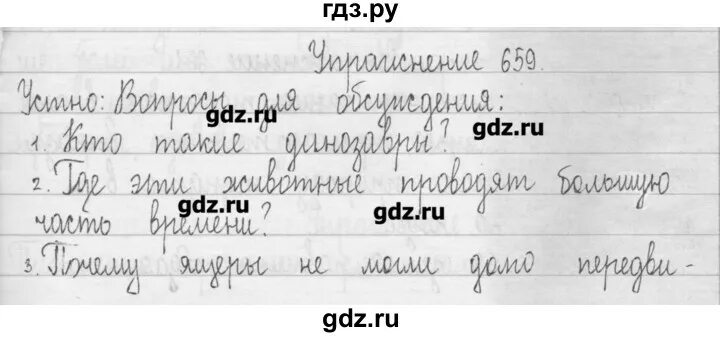 гдз.ру
Упражнение 659.
Устно: Вопросы для обсуждения:
gdz.ru
1. Кто такие динозавры?
gdz.ru
2. Где эти животные проводят большую
gdz.ru
часть времени?
gdz.ru
3. Почему ящеры не могли долго передви-
gdz.ru